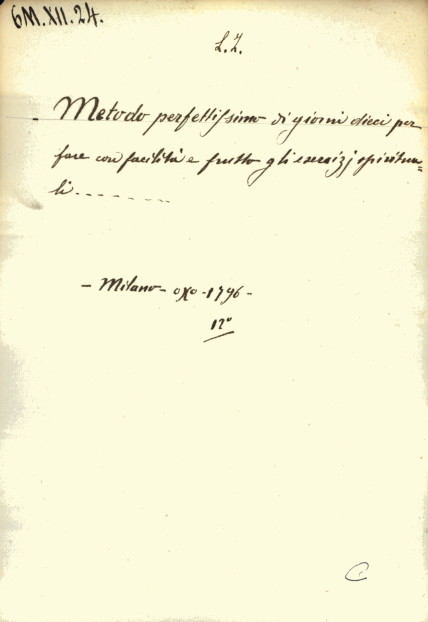 6M.XII.24.
L.Z.
- Metodo perfettissimo di giorni dieci per
fare con facilità e frutto gli esercizj spiritua=
li.- - - - - - - -
- Milano - 1796 -
12º
C